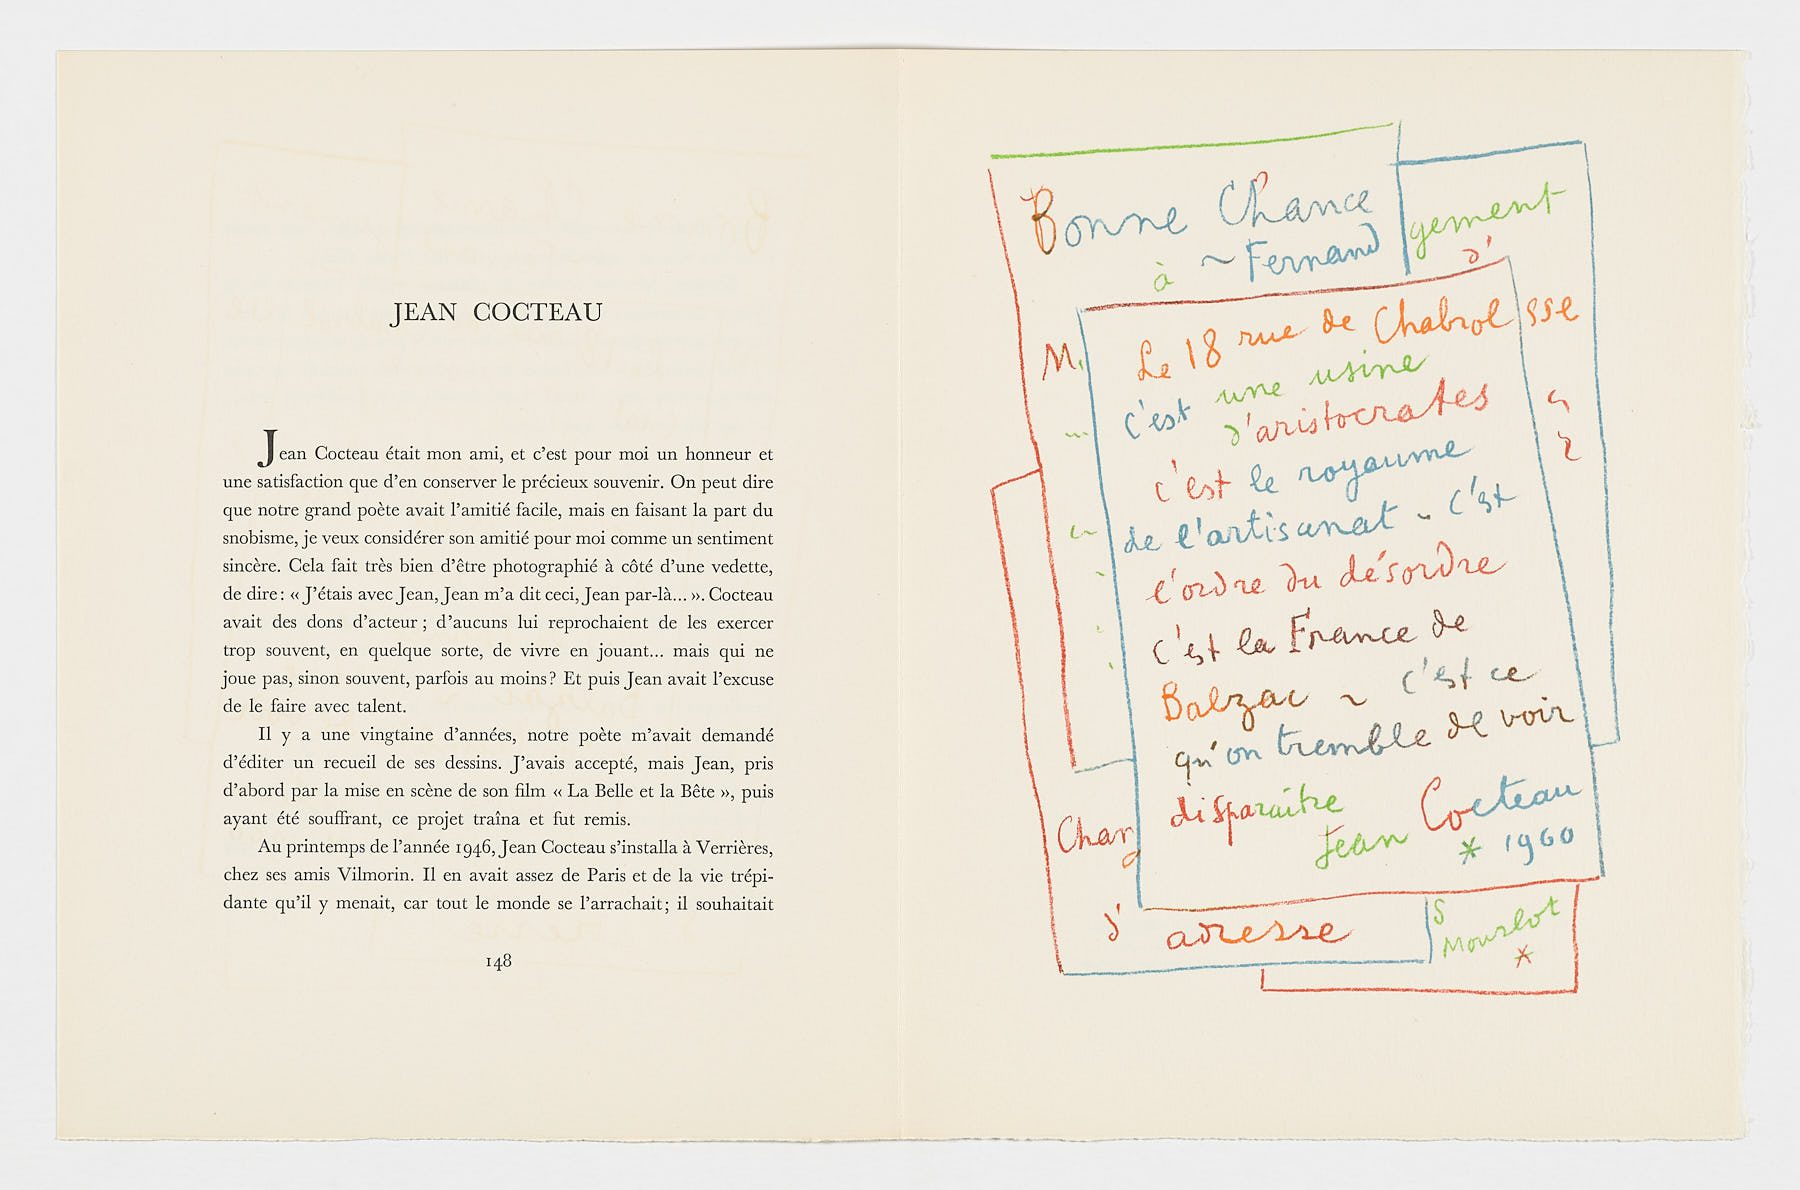 JEAN COCTEAU
Jean Cocteau était mon ami, et c'est pour moi un honneur et
une satisfaction que d'en conserver le précieux souvenir. On peut dire
que notre grand poète avait l'amitié facile, mais en faisant la part du
snobisme, je veux considérer son amitié pour moi comme un sentiment
sincère. Cela fait très bien d'être photographié à côté d'une vedette,
de dire : « J'étais avec Jean, Jean m'a dit ceci, Jean par-là... ». Cocteau
avait des dons d'acteur ; d'aucuns lui reprochaient de les exercer
trop souvent, en quelque sorte, de vivre en jouant... mais qui ne
joue pas, sinon souvent, parfois au moins? Et puis Jean avait l'excuse
de le faire avec talent.
Il y a une vingtaine d'années, notre poète m'avait demandé
d'éditer un recueil de ses dessins. J'avais accepté, mais Jean, pris
d'abord par la mise en scène de son film « La Belle et la Bête », puis
ayant été souffrant, ce projet traîna et fut remis.
Au printemps de l'année 1946, Jean Cocteau s'installa à Verrières,
chez ses amis Vilmorin. Il en avait assez de Paris et de la vie trépi-
dante qu'il y menait, car tout le monde se l'arrachait; il souhaitait
148
Bonne Chance
à ~ Fernand
gement
d'
sse
M.
Le 18 rue de Chabrol
c'est une usine
d'aristocrates
c'est le royaume
de l'artisanat ~ c'est
l'ordre du désordre
c'est la France de
Balzac ~ c'est ce
qu'on tremble de voir
disparaître
Jean Cocteau
* 1960
Chang
d' adresse
S
Mourlot
*